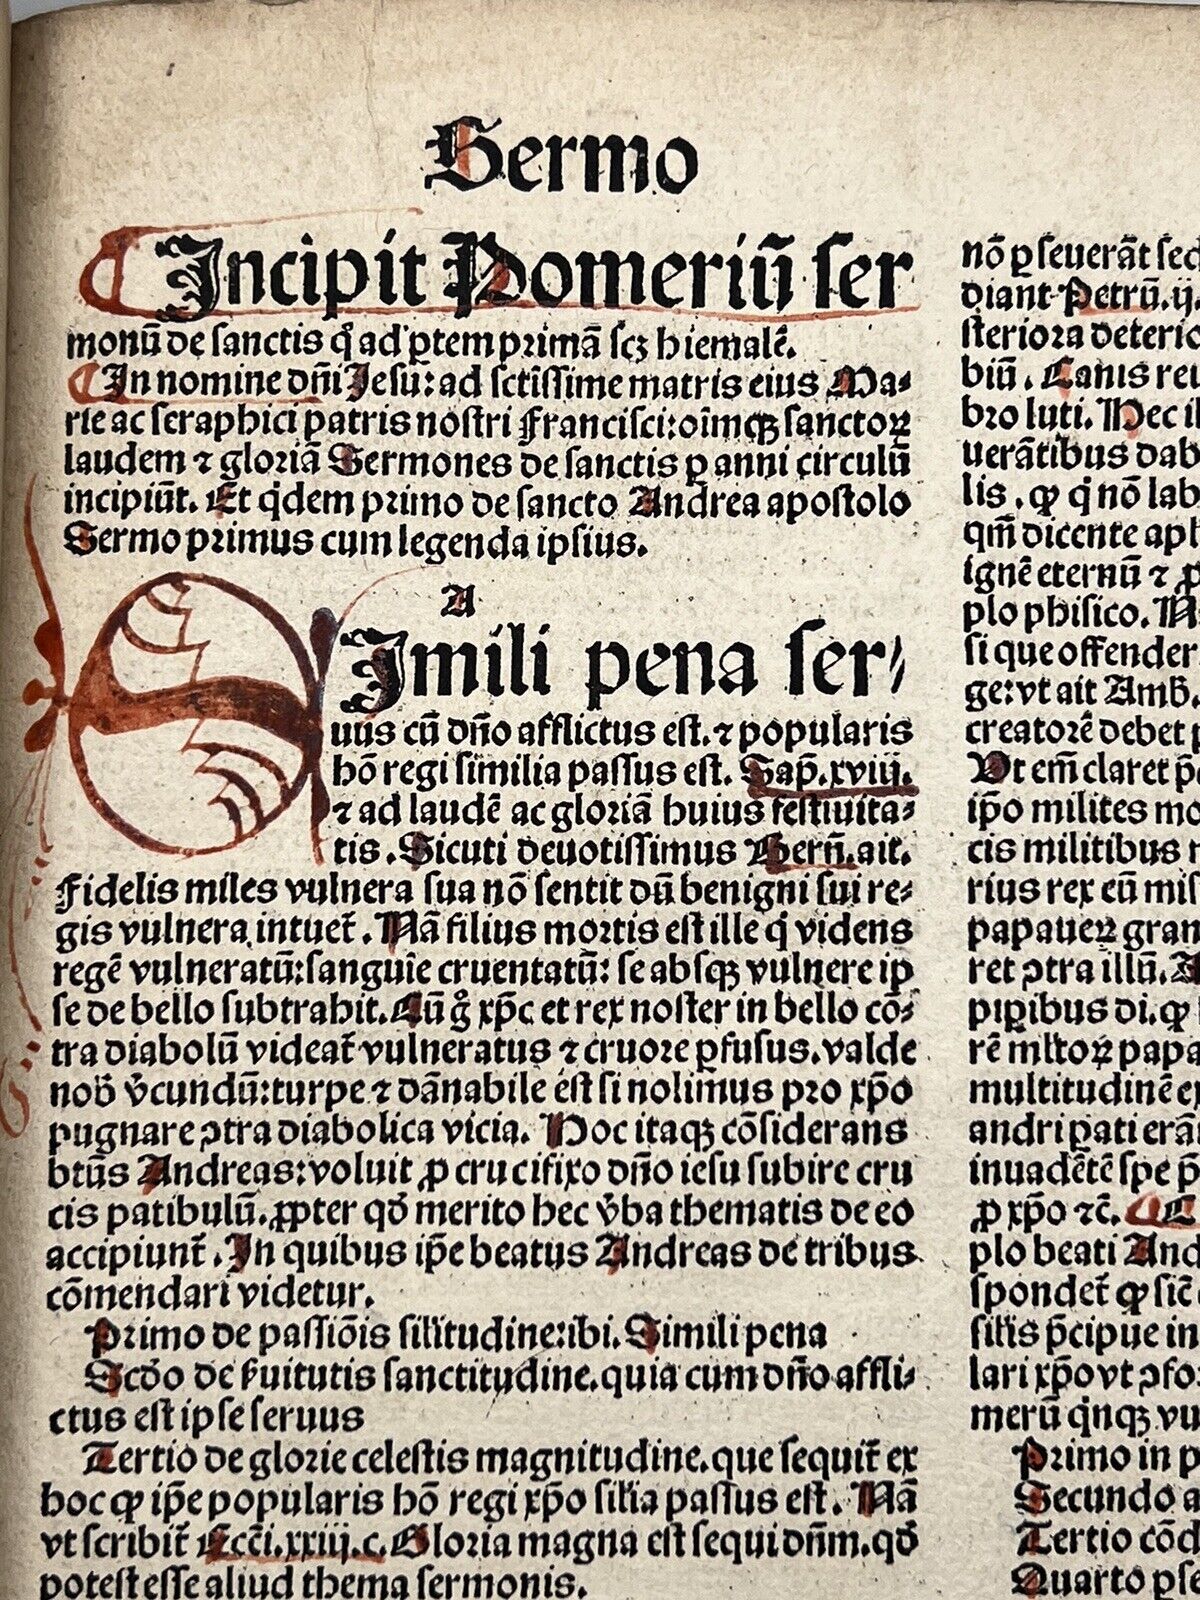 Sermo
Incipit Pomeriū ſer
monū de ſanctis qͦ ad ꝑtem primā ſcꝫ hiemalē.
In nomine dn̄i Jeſu: ad ſctīſſime matris eius Ma⸗
rie ac ſeraphici patris noſtri Franciſci: oīmqꝫ ſanctoꝝ
laudem ⁊ gloriā Sermones de ſanctis ꝑ anni circulū
incipiūt. Et qͥdem primo de ſancto Andrea apoſtolo
Sermo primus cum legenda ipſius.
A
SImili pena ſer⸗
uus cū dn̄o afflictus eſt. ⁊ popularis
hō regi ſimilia paſſus eſt. Sap̄. xviij.
⁊ ad laudē ac gloriā huius feſtiuita⸗
tis. Sicuti deuotiſſimus Bern̄. ait.
Fidelis miles vulnera ſua nō ſentit dū benigni ſui re⸗
gis vulnera intuet̄. Nā filius mortis eſt ille qͥ videns
regē vulneratū: ſanguīe cruentatū: ſe abſqꝫ vulnere ip
ſe de bello ſubtrahit. Cū gͦ xp̄c et rex noſter in bello cō⸗
tra diabolū videat̄ vulneratus ⁊ cruore ꝑfuſus. valde
nob̄ v̄cundū: turpe ⁊ dānabile eſt ſi nolimus pro xp̄o
pugnare ꝯtra diabolica vicia. Hoc itaqꝫ cōſiderans
btūs Andreas: voluit ꝓ crucifixo dn̄o ieſu ſubire cru
cis patibulū. ꝓpter qd̄ merito hec v̄ba thematis de eo
accipiunt̄. In quibus ip̄e beatus Andreas de tribus
cōmendari videtur.
Primo de paſſiōis ſilitudine: ibi. Simili pena
Scd̄o de ſ̄uitutis ſanctitudine. quia cum dn̄o affli⸗
ctus eſt ipſe ſeruus
Tertio de glorie celeſtis magnitudine. que ſequit̄ ex
hoc ꝙ ip̄e popularis hō regi xp̄o ſilia paſſus eſt. Nā
vt ſcribit̄ Ecci. xxiij. c. Gloria magna eſt ſequi dn̄m. qd̄
poteſt eſſe aliud thema ſermonis.
nō ꝑſeuerāt ſed
diant Petrū. ij.
ſteriora deterio
biū. Canis reu
bro luti. Hec
uerātibus dab
lis. ꝙ qͥ nō lab
qm̄ dicente
ignē eternū ⁊
plo phiſico.
ſi que offender
ge: vt ait Amb̄.
creatorē debet
Ut em̄ claret
ip̄o milites mo
cis militibus
rius rex eū miſ
papaueꝝ gran
ret ꝯtra illū.
di. ꝙ
papa
multitudinē
andri pati erā
ſpe
ꝓ xp̄o ⁊c̄.
plo beati And
ſpondet̄ ꝙ
p̄cipue in
lari xp̄o vt ꝯfo
merū qͥnqꝫ vu
Primo in
Secundo
Tertio
Quarto